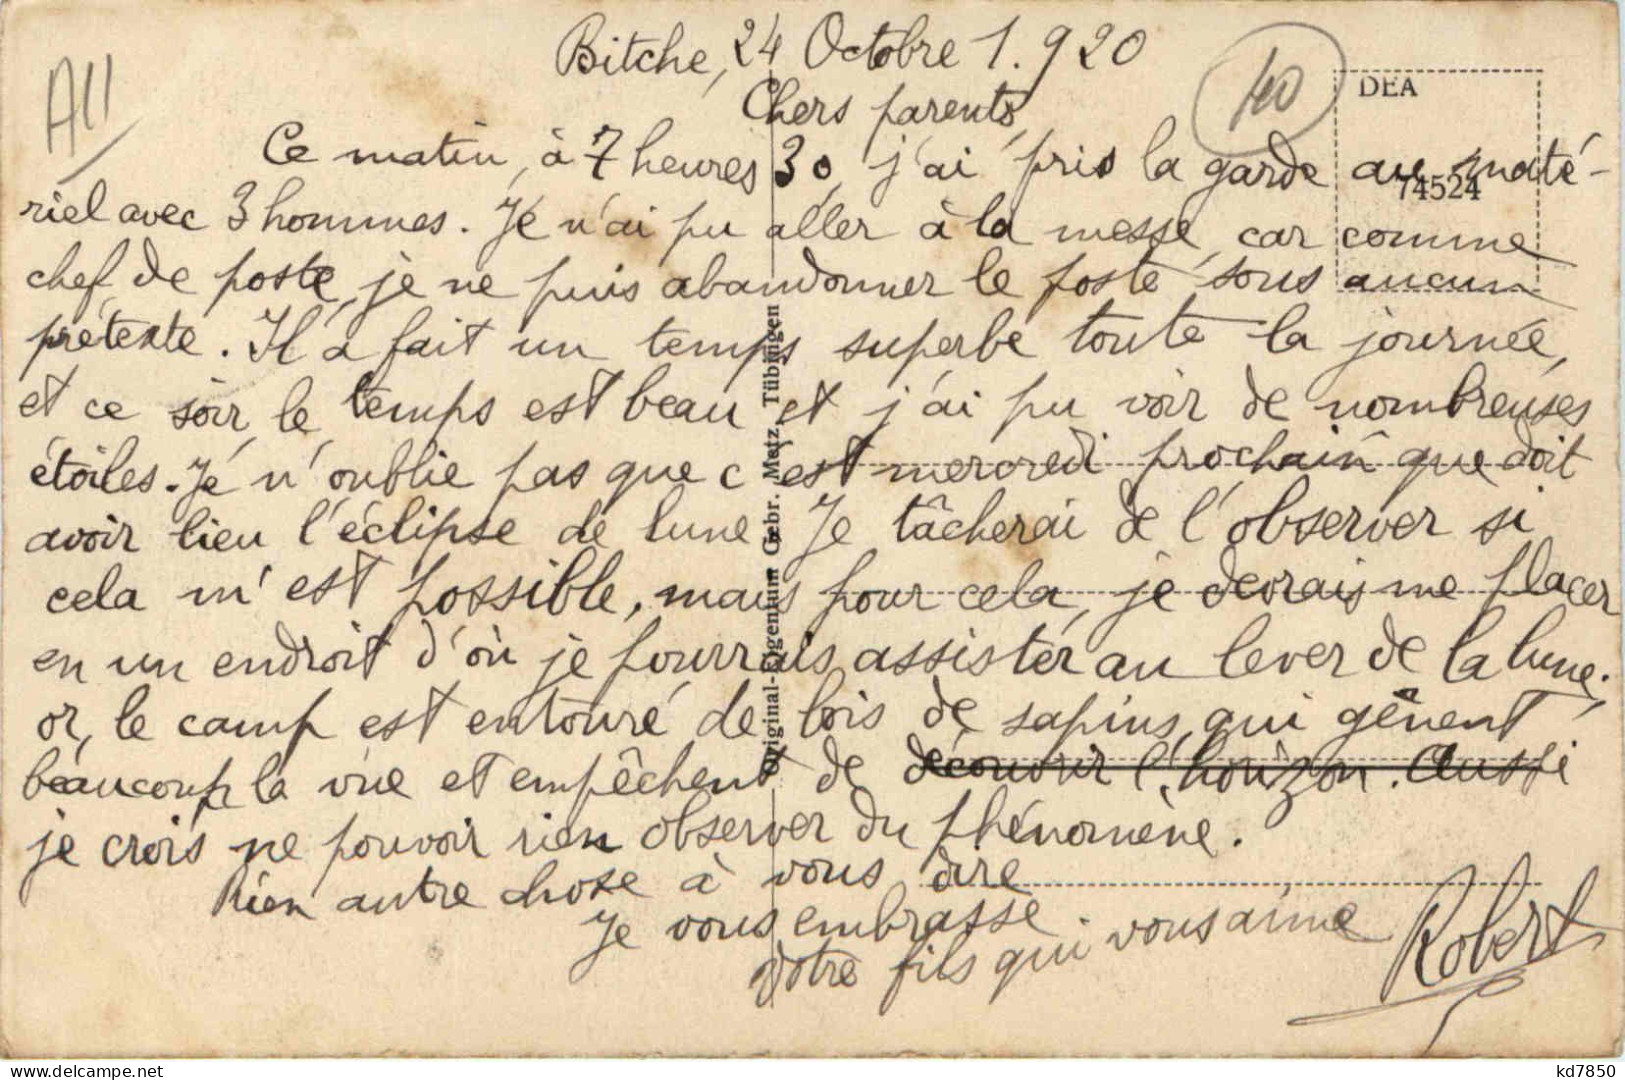 Bitche, 24 Octobre 1.920
All
40
DEA
74524
Chers parents,
Ce matin, à 7 heures 30, j'ai pris la garde au maté-
riel avec 3 hommes. Je n'ai pu aller à la messe, car comme
chef de poste, je ne puis abandonner le poste sous aucun
prétexte. Il a fait un temps superbe toute la journée,
et ce soir le temps est beau et j'ai pu voir de nombreuses
étoiles. Je n'oublie pas que c'est mercredi prochain que doit
avoir lieu l'éclipse de lune. Je tâcherai de l'observer si
cela m'est possible, mais pour cela, je devrais me placer
en un endroit d'où je pourrais assister au lever de la lune;
or, le camp est entouré de bois de sapins, qui gênent
beaucoup la vue et empêchent de découvrir l'horizon. Aussi
je crois ne pouvoir rien observer du phénomène.
Rien autre chose à vous dire
Je vous embrasse.
Votre fils qui vous aime
Robert
Original-Eigentum Gebr. Metz, Tübingen
kd7850